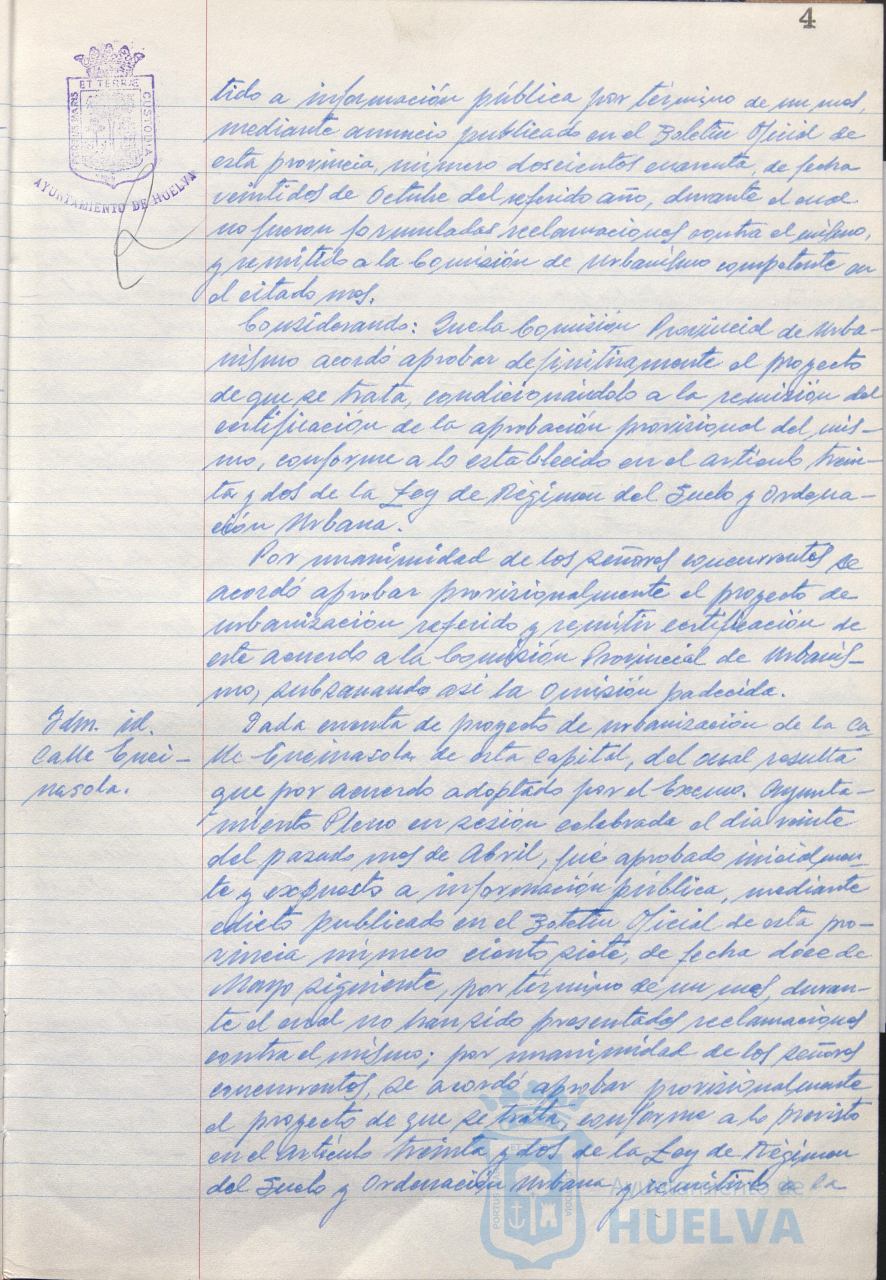 4
ET TERRÆ
PORTUS MARIS
CUSTODIA
AYUNTAMIENTO DE HUELVA
tido a información pública por término de un mes,
mediante anuncio publicado en el Boletín Oficial de
esta provincia, número doscientos cuarenta, de fecha
veintidos de Octubre del referido año, durante el cual
no fueron formuladas reclamaciones contra el mismo,
y remitido a la Comisión de Urbanismo competente en
el citado mes.
Considerando: Que la Comisión Provincial de Urba-
nismo acordó aprobar definitivamente el proyecto
de que se trata, condicionándolo a la remisión del
certificación de la aprobación provisional del mis-
mo, conforme a lo establecido en el artículo trein-
ta y dos de la Ley de Régimen del Suelo y Ordena-
ción Urbana.
Por unanimidad de los señores concurrentes se
acordó aprobar provisionalmente el proyecto de
urbanización referido y remitir certificación de
este acuerdo a la Comisión Provincial de Urbanis-
mo, subsanando así la omisión padecida.
Idm. id.
Calle Enci-
nasola.
Dada cuenta de proyecto de urbanización de la Ca-
lle Encinasola, de esta Capital, del cual resulta
que por acuerdo adoptado por el Excmo. Ayunta-
miento Pleno en sesión celebrada el dia veinte
del pasado mes de Abril, fué aprobado inicialmen-
te y expuesto a información pública, mediante
edicto publicado en el Boletín Oficial de esta pro-
vincia número ciento siete, de fecha doce de
Mayo siguiente, por término de un mes, duran-
te el cual no han sido presentadas reclamaciones
contra el mismo; por unanimidad de los señores
concurrentes, se acordó aprobar provisionalmente
el proyecto de que se trata, conforme a lo previsto
en el Artículo treinta y dos de la Ley de Régimen
del Suelo y Ordenación Urbana y remitirlo a la
Ayuntamiento de
HUELVA